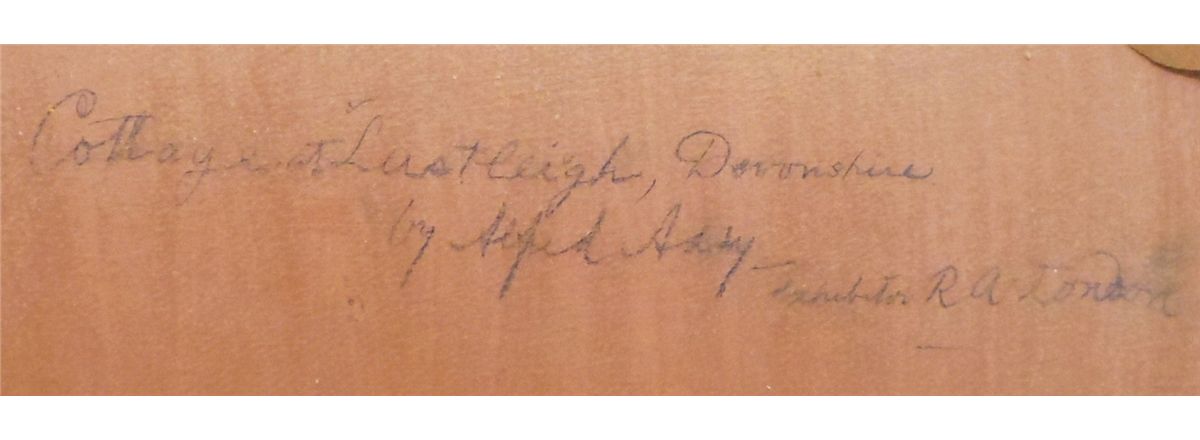 Cottage at Lustleigh, Devonshire
by Alfred
Exhibitor R A London